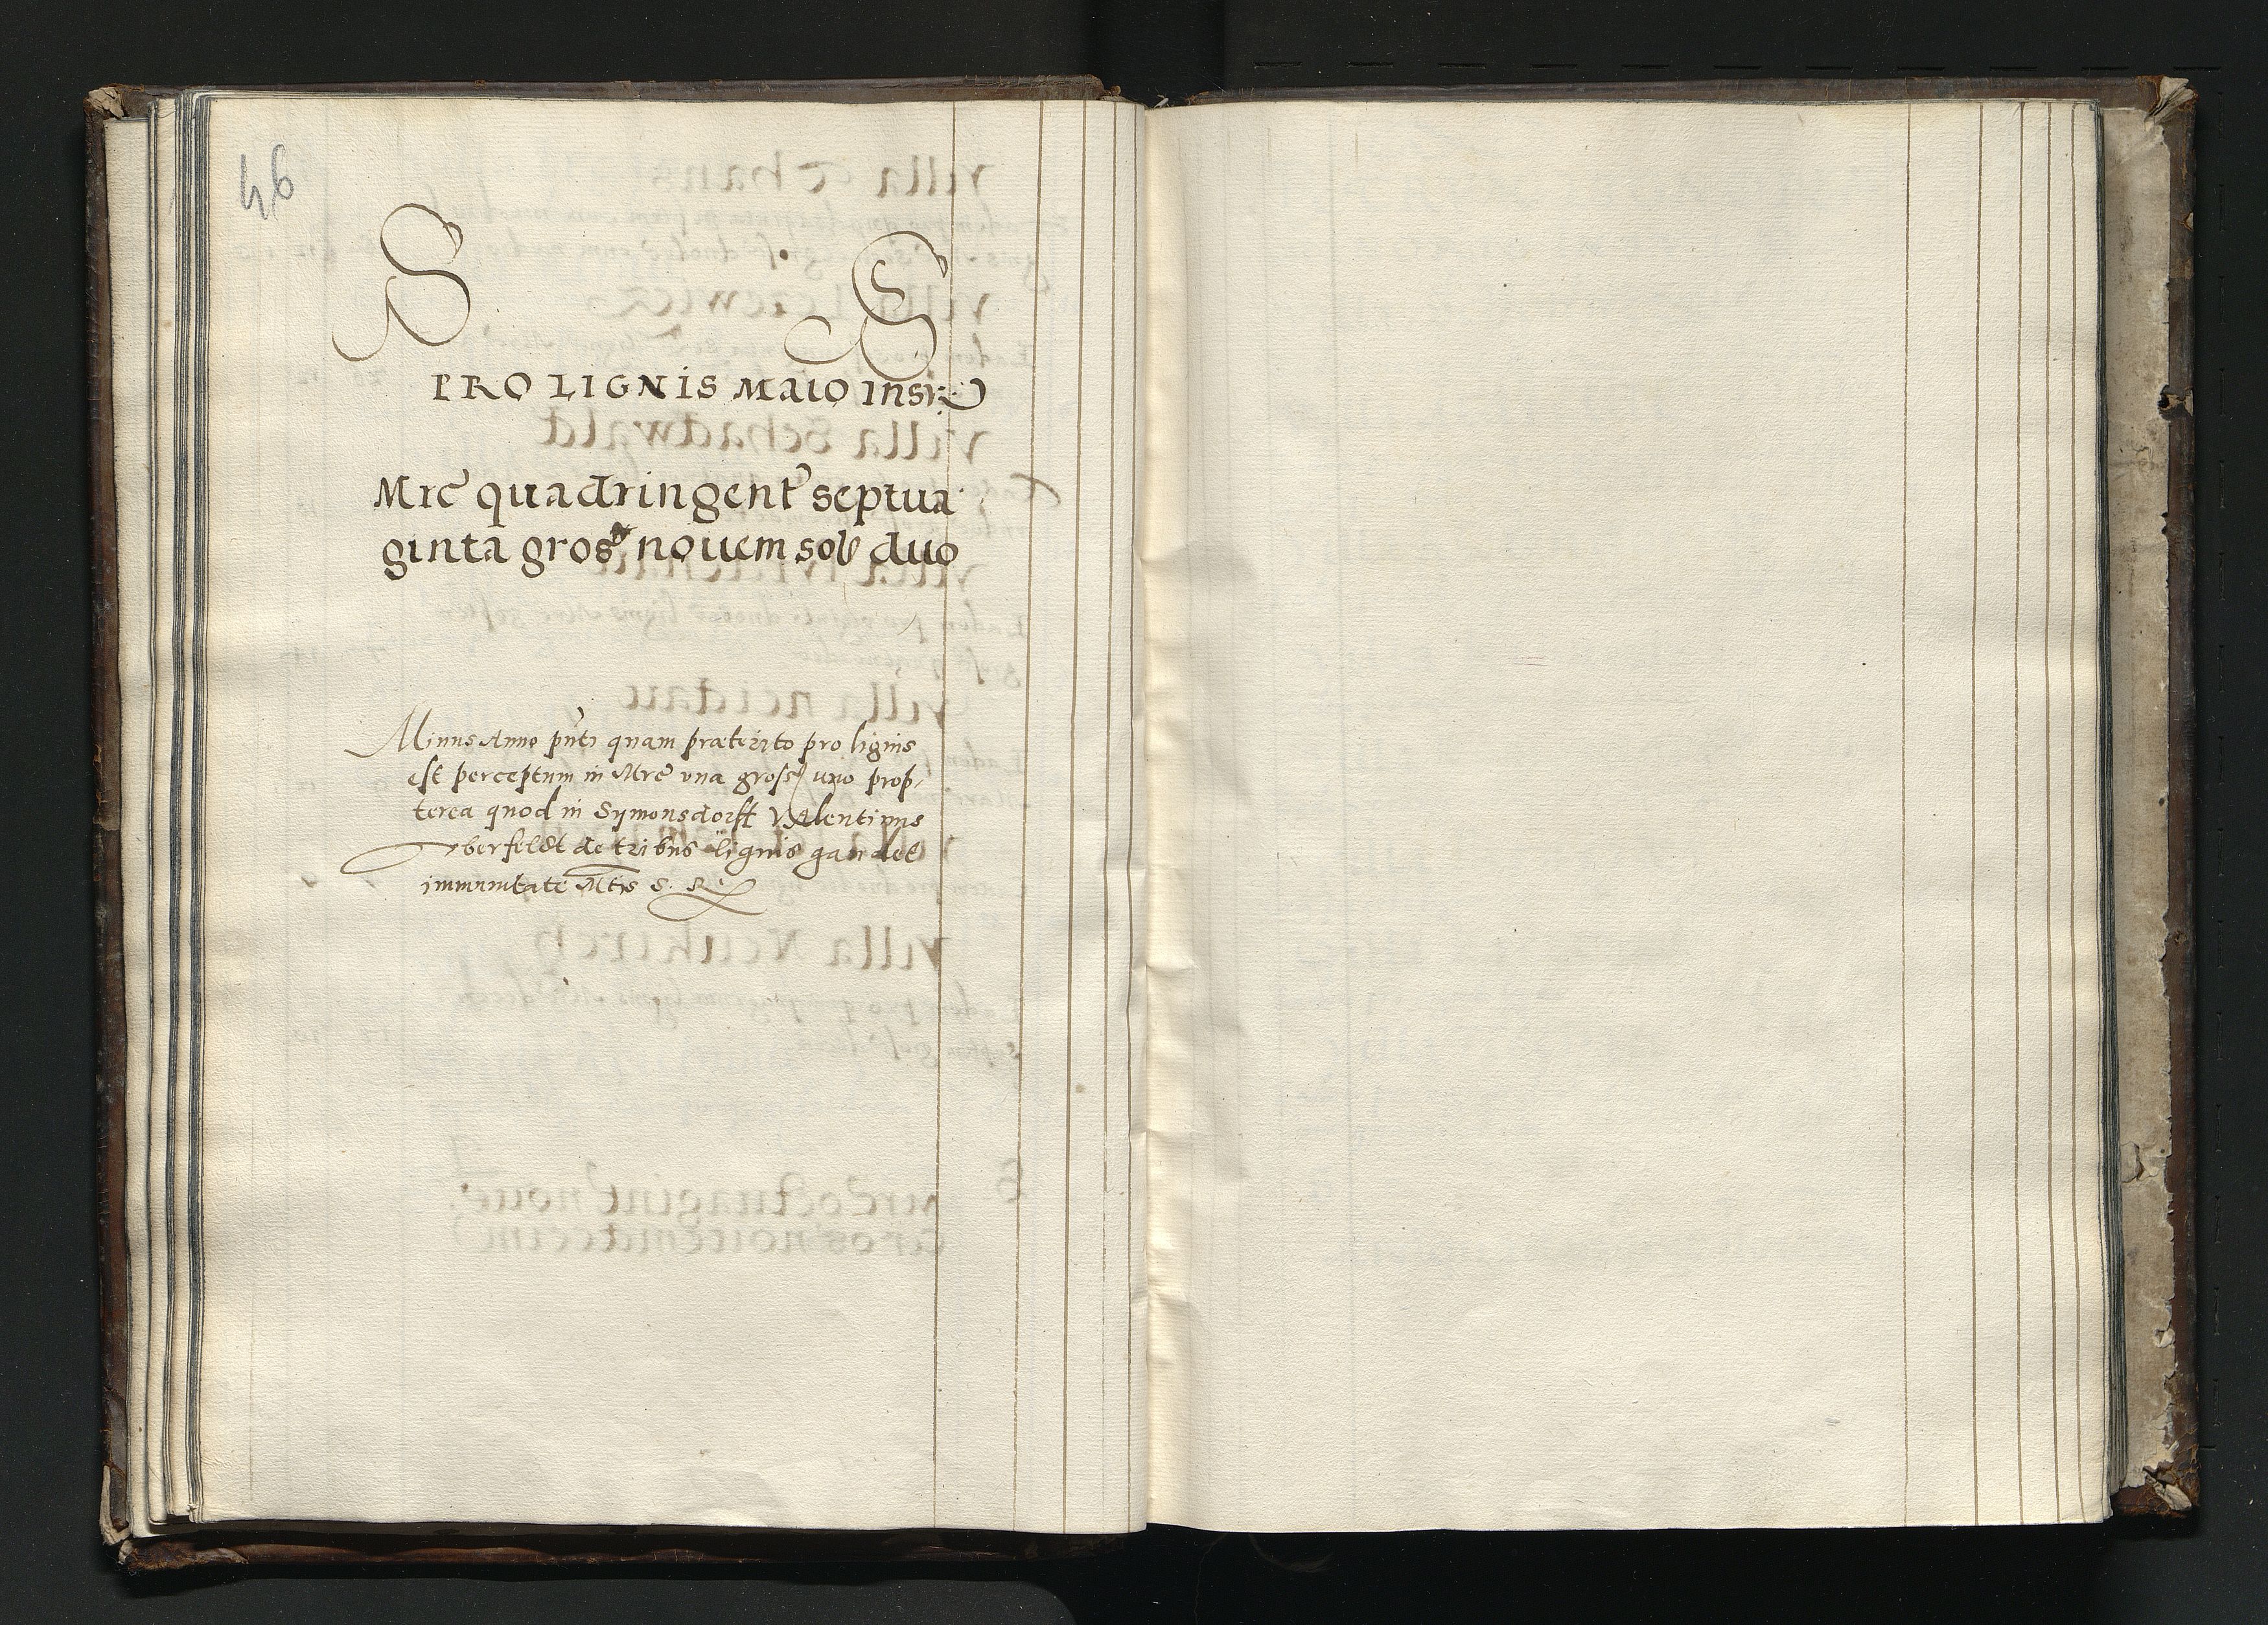 46
S S
PRO LIGNIS MAIO INSR
Mrc quadringent septua
ginta gros novem sol duo
Minus Anno pnti quam præterito pro lignis
est perceptum in Mrc una gross uno prop,
terea quod in Symonsdorff Valentinus
berfeldt de tribus lignis gaudet
immunitate Mtis S. R.